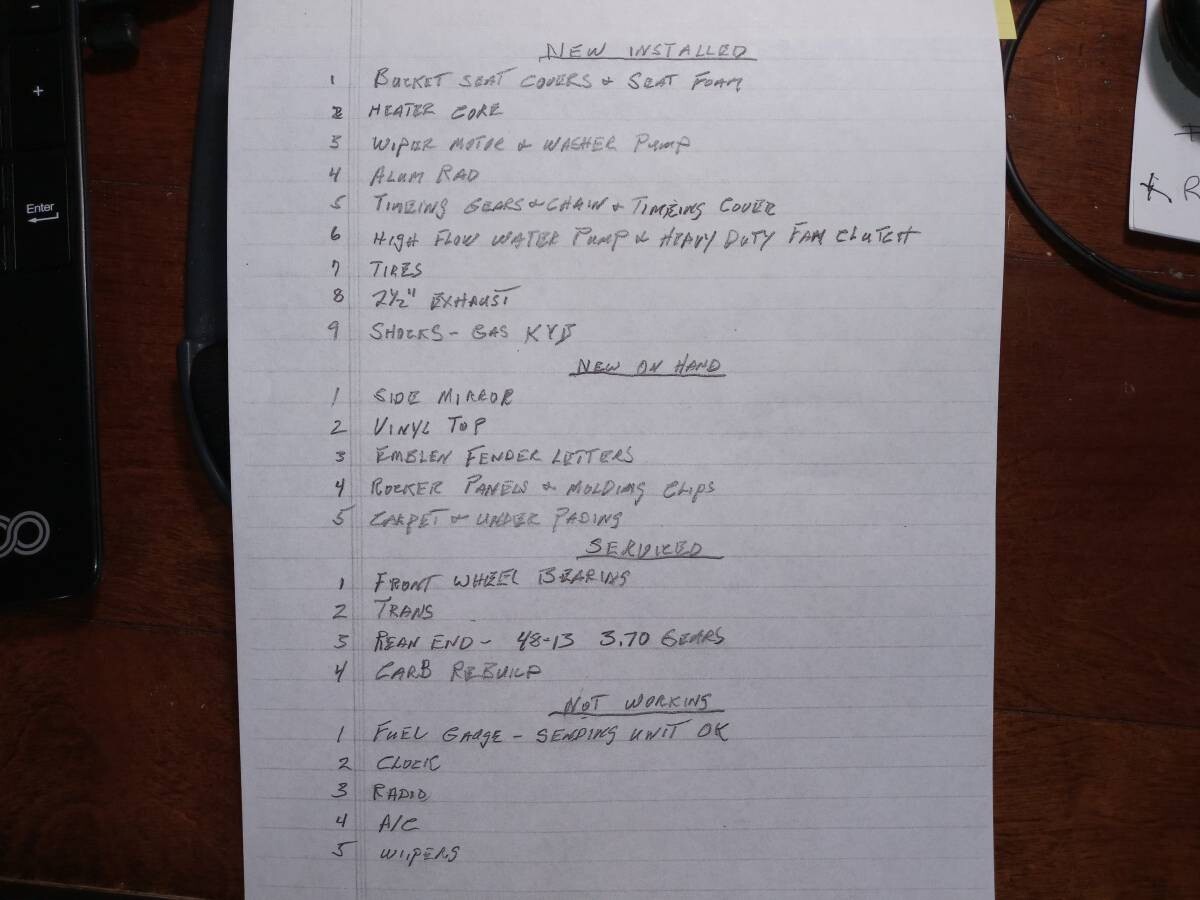 NEW INSTALLED
1 BUCKET SEAT COVERS & SEAT FOAM
2 HEATER CORE
3 WIPER MOTOR & WASHER PUMP
4 ALUM RAD
5 TIMEING GEARS & CHAIN & TIMEING COVER
6 HIGH FLOW WATER PUMP & HEAVY DUTY FAN CLUTCH
7 TIRES
8 2½" EXHAUST
9 SHOCKS - GAS KYB
NEW ON HAND
1 SIDE MIRROR
2 VINYL TOP
3 EMBLEN FENDER LETTERS
4 ROCKER PANELS & MOLDING CLIPS
5 CARPET & UNDER PADING
SERVICED
1 FRONT WHEEL BEARING
2 TRANS
3 REAR END - 48-13 3.70 GEARS
4 CARB REBUILD
NOT WORKING
1 FUEL GAUGE - SENDING UNIT OK
2 CLOCK
3 RADIO
4 A/C
5 WIIPERS
-
+
Enter
* R